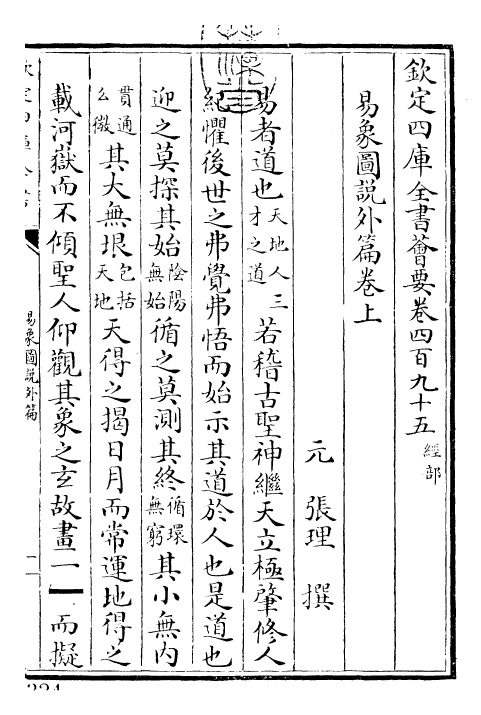 欽定四庫全書薈要卷四百九十五 經部
易象圖說外篇卷上
元 張理 撰
易者道也天地人三才之道若稽古聖神繼天立極肇修人
紀懼後世之弗覺弗悟而始示其道於人也是道也
迎之莫探其始陰陽無始循之莫測其終循環無窮其小無內
貫通幺微其大無垠包括天地天得之揭日月而常運地得之
載河嶽而不傾聖人仰觀其象之玄故畫一━而擬
易象圖說外篇
一